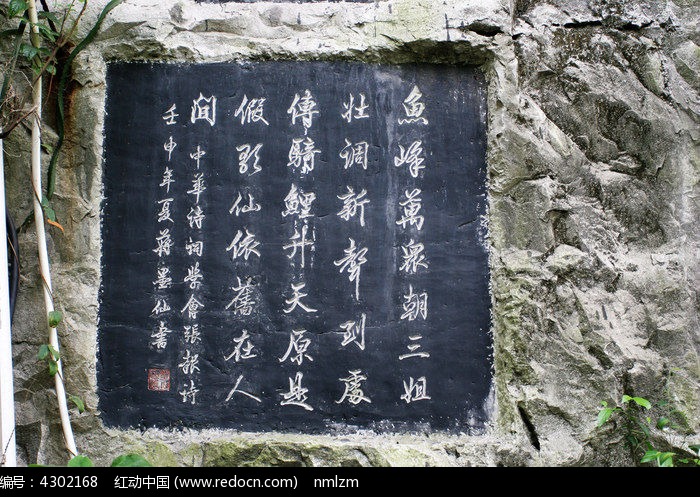 魚峰萬眾朝三姐
壯調新聲到處
傳騎鯉升天原是
假歌仙依舊在人
間 中華诗詞學會張報诗
壬申年夏蔣墨仙書
编号：4302168 红动中国 (www.redocn.com) nmlzm